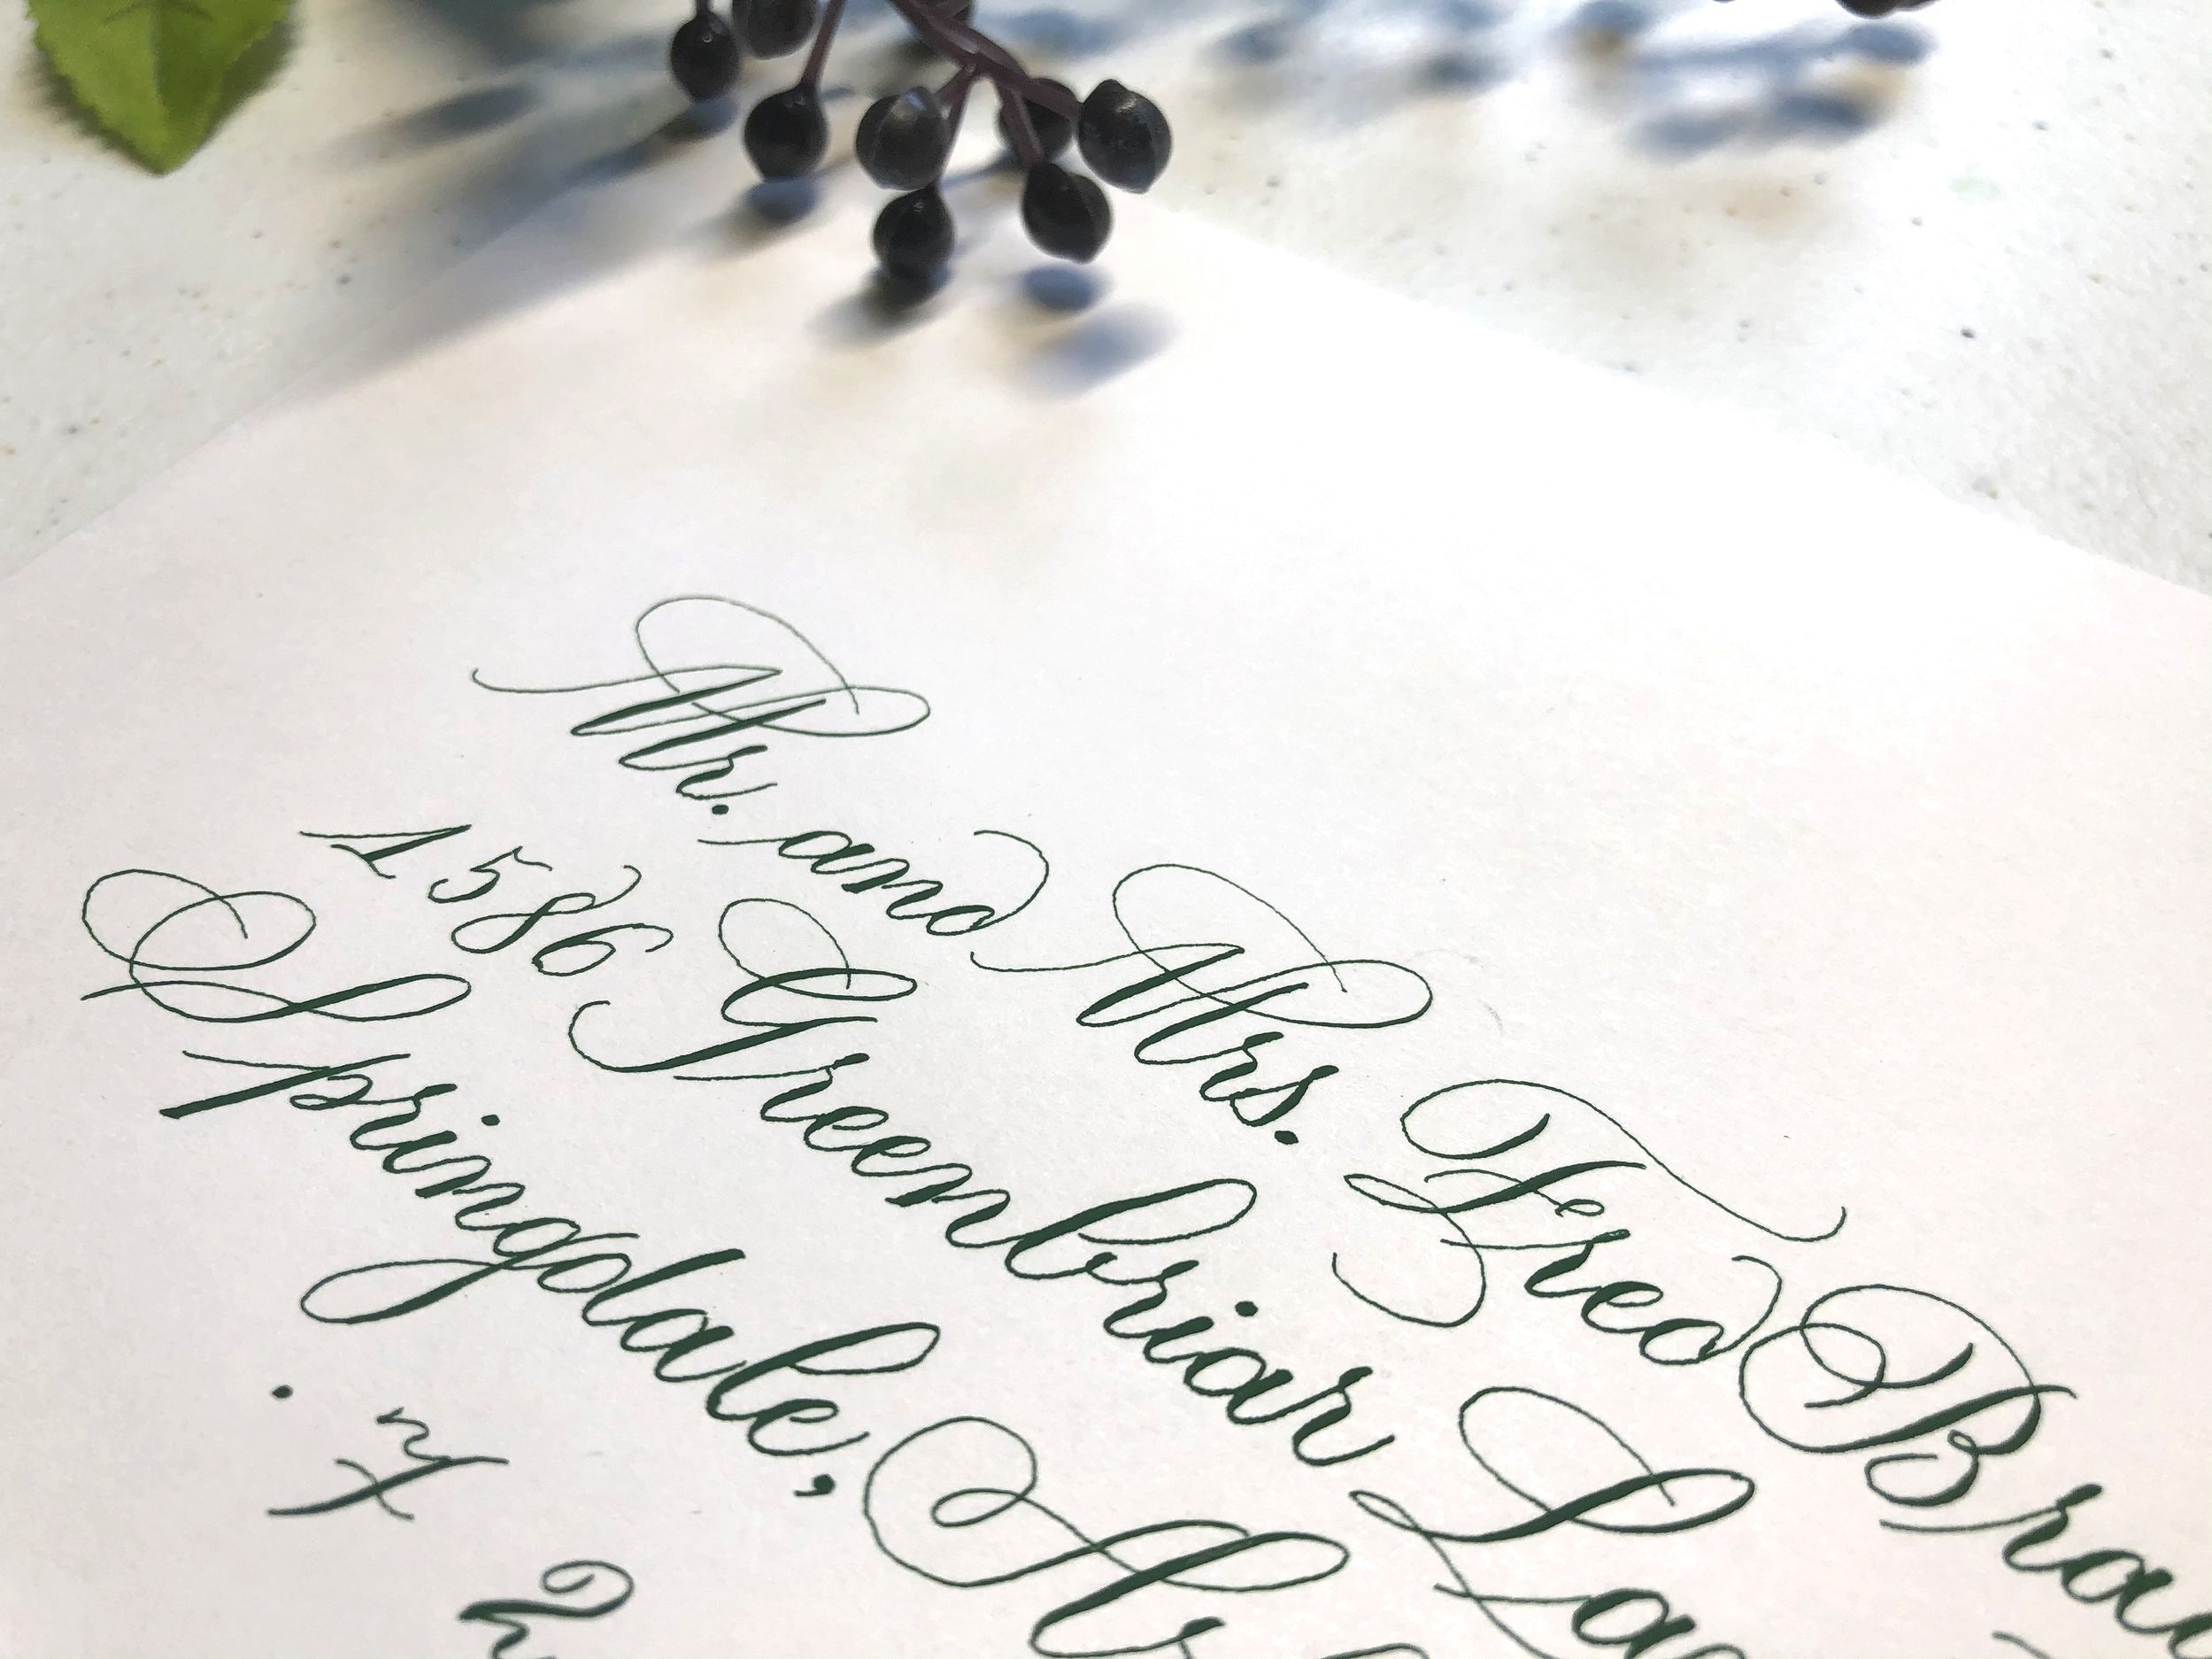 Mr. and Mrs. Fred
1586 Greenbriar
Springdale,
. 7 2